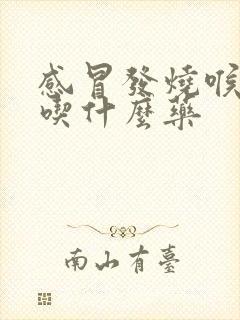 感冒發燒喉
喫什麼藥
南山有臺